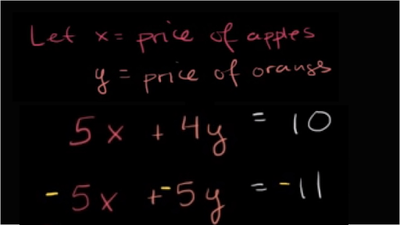 Let x = price of apples
y = price of orangs
5x + 4y = 10
-5x + -5y = -11